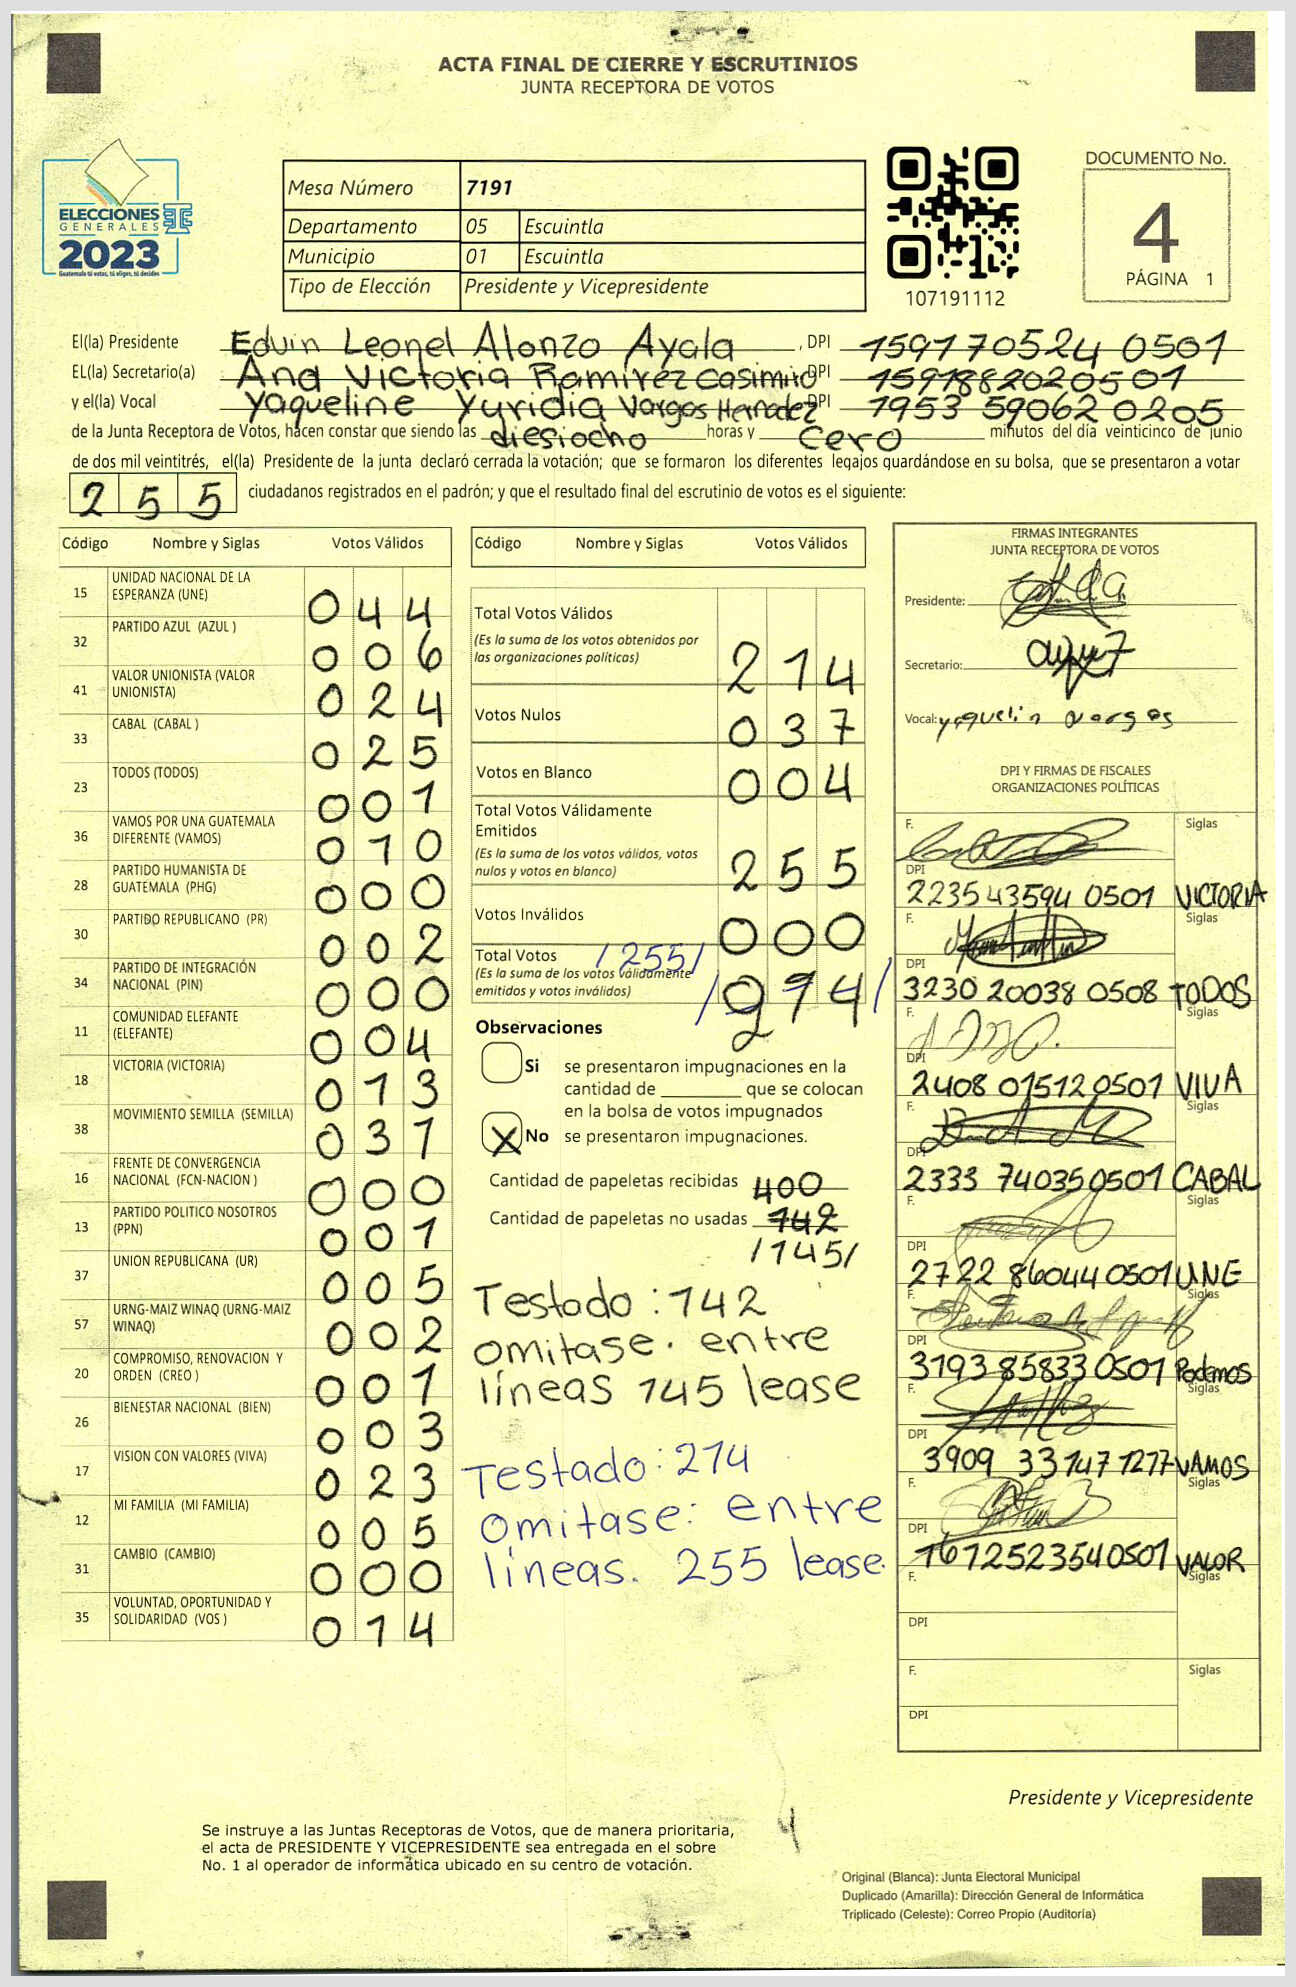 ACTA FINAL DE CIERRE Y ESCRUTINIOS
JUNTA RECEPTORA DE VOTOS
ELECCIONES
GENERALES
2023
Guatemala tú votas, tú eliges, tú decides
Mesa Número 7191
Departamento 05 Escuintla
Municipio 01 Escuintla
Tipo de Elección Presidente y Vicepresidente
107191112
DOCUMENTO No.
4
PÁGINA 1
El(la) Presidente Eduin Leonel Alonzo Ayala , DPI 159170524 0501
EL(la) Secretario(a) Ana Victoria Ramírez Casimiro DPI 1591882020501
y el(la) Vocal Yaqueline Yuridia Vargas Hernadez DPI 1953 59062 0205
de la Junta Receptora de Votos, hacen constar que siendo las diesiocho horas y cero minutos del día veinticinco de junio
de dos mil veintitrés, el(la) Presidente de la junta declaró cerrada la votación; que se formaron los diferentes legajos guardándose en su bolsa, que se presentaron a votar
255 ciudadanos registrados en el padrón; y que el resultado final del escrutinio de votos es el siguiente:
Código Nombre y Siglas Votos Válidos
15 UNIDAD NACIONAL DE LA ESPERANZA (UNE) 044
32 PARTIDO AZUL (AZUL ) 006
41 VALOR UNIONISTA (VALOR UNIONISTA) 024
33 CABAL (CABAL ) 025
23 TODOS (TODOS) 001
36 VAMOS POR UNA GUATEMALA DIFERENTE (VAMOS) 010
28 PARTIDO HUMANISTA DE GUATEMALA (PHG) 000
30 PARTIDO REPUBLICANO (PR) 002
34 PARTIDO DE INTEGRACIÓN NACIONAL (PIN) 000
11 COMUNIDAD ELEFANTE (ELEFANTE) 004
18 VICTORIA (VICTORIA) 013
38 MOVIMIENTO SEMILLA (SEMILLA) 031
16 FRENTE DE CONVERGENCIA NACIONAL (FCN-NACION ) 000
13 PARTIDO POLITICO NOSOTROS (PPN) 001
37 UNION REPUBLICANA (UR) 005
57 URNG-MAIZ WINAQ (URNG-MAIZ WINAQ) 002
20 COMPROMISO, RENOVACION Y ORDEN (CREO ) 001
26 BIENESTAR NACIONAL (BIEN) 003
17 VISION CON VALORES (VIVA) 023
12 MI FAMILIA (MI FAMILIA) 005
31 CAMBIO (CAMBIO) 000
35 VOLUNTAD, OPORTUNIDAD Y SOLIDARIDAD (VOS ) 014
Código Nombre y Siglas Votos Válidos
Total Votos Válidos 214
(Es la suma de los votos obtenidos por
las organizaciones políticas)
Votos Nulos 037
Votos en Blanco 004
Total Votos Válidamente
Emitidos 255
(Es la suma de los votos válidos, votos
nulos y votos en blanco)
Votos Inválidos 000
Total Votos /255/
(Es la suma de los votos válidamente
emitidos y votos inválidos)
Observaciones
Si se presentaron impugnaciones en la
cantidad de ________ que se colocan
en la bolsa de votos impugnados
X No se presentaron impugnaciones.
Cantidad de papeletas recibidas 400
Cantidad de papeletas no usadas 142
/145/
Testado: 142
omitase. entre
líneas 145 lease
Testado: 214
omitase: entre
líneas. 255 lease.
FIRMAS INTEGRANTES
JUNTA RECEPTORA DE VOTOS
Presidente:
Secretario:
Vocal: yaquelin vargas
DPI Y FIRMAS DE FISCALES
ORGANIZACIONES POLÍTICAS
F. Siglas
DPI 2235 43594 0501 VICTORIA
F. Siglas
DPI 3230 20038 0508 TODOS
F. Siglas
DPI 2408 01512 0501 VIVA
F. Siglas
DPI 2333 74035 0501 CABAL
F. Siglas
DPI 2722 86044 0501 UNE
F. Siglas
DPI 3193 85833 0501 Podemos
F. Siglas
DPI 3909 33147 1277 VAMOS
F. Siglas
DPI 1612523540501 VALOR
F. Siglas
DPI
F. Siglas
DPI
Presidente y Vicepresidente
Se instruye a las Juntas Receptoras de Votos, que de manera prioritaria,
el acta de PRESIDENTE Y VICEPRESIDENTE sea entregada en el sobre
No. 1 al operador de informática ubicado en su centro de votación.
4
Original (Blanca): Junta Electoral Municipal
Duplicado (Amarilla): Dirección General de Informática
Triplicado (Celeste): Correo Propio (Auditoría)